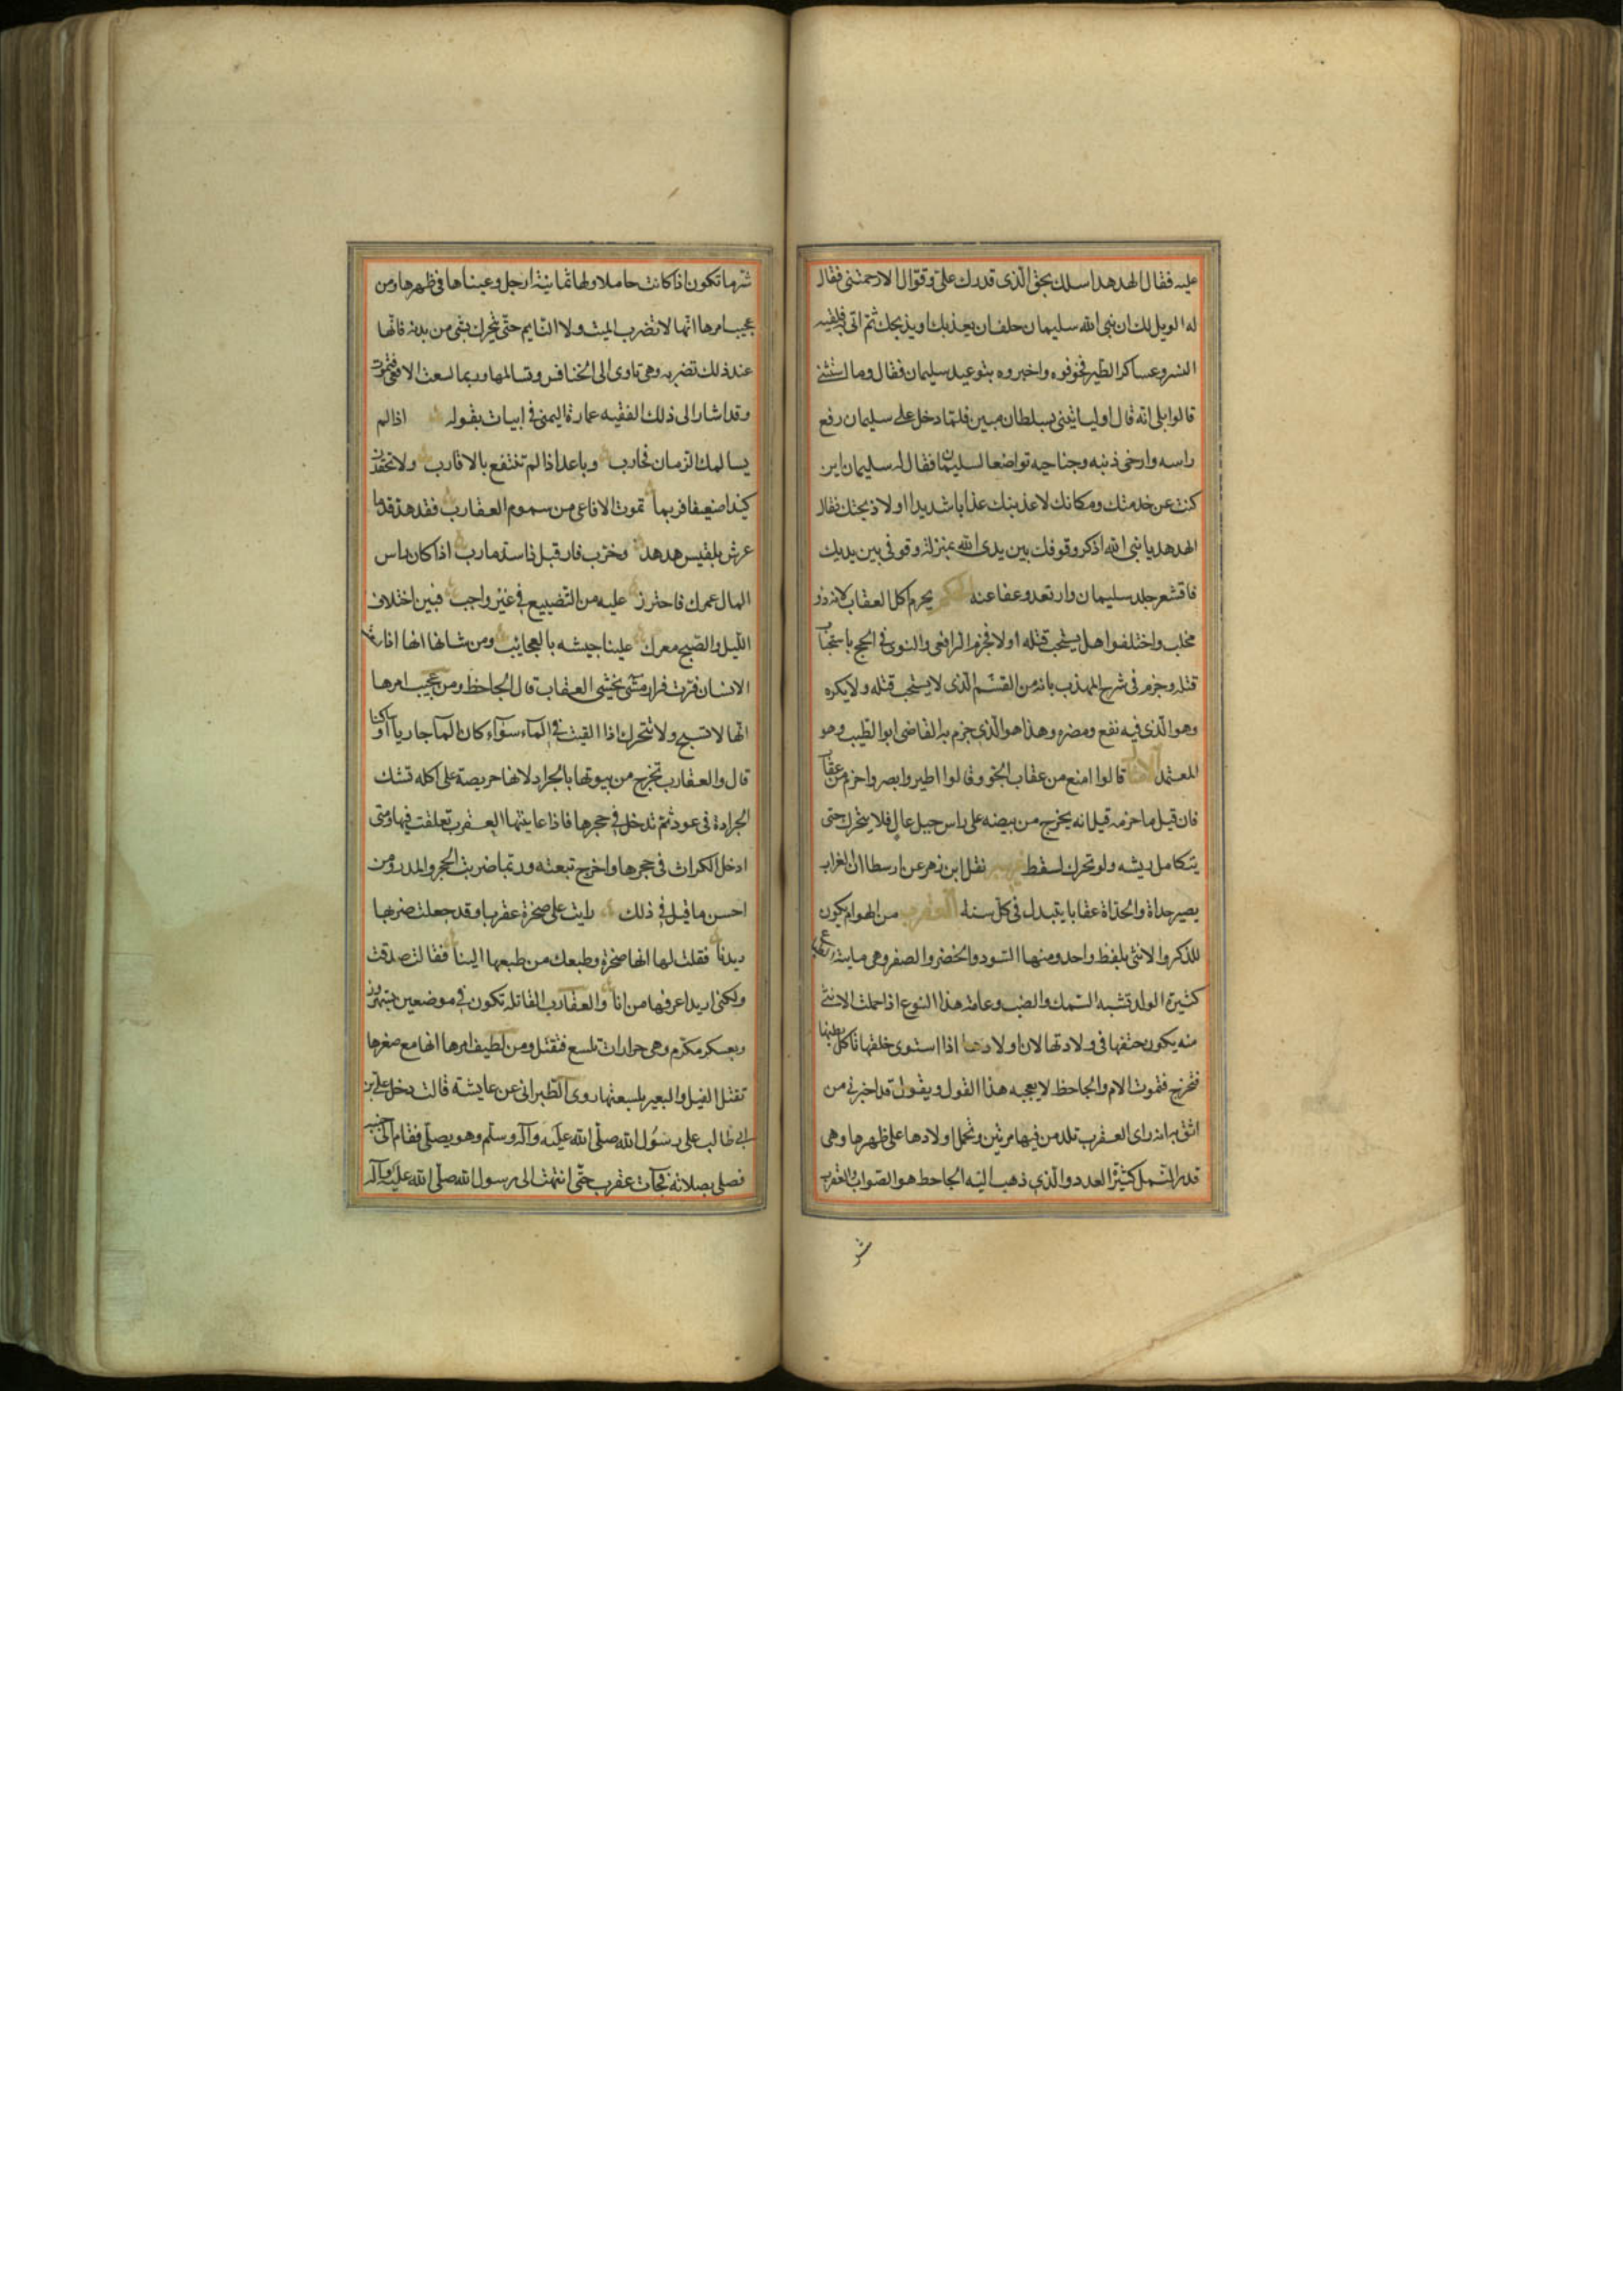 عليه فقال الهدهد اسلك بحق الذى قدرك على وقوّال الا رحمتنى فقال
له الويل لك ان نبى الله سليمان حلف ان يعذبك او يذبحك ثم اتى به فلقيه
النسر وعساكر الطير فخوفوه واخبروه بتوعيد سليمان فقال وما استثنى
قالوا بلى انه قال او لياتينى بسلطان مبين فلما دخل على سليمان رفع
راسه وارخى ذنبه وجناحيه تواضعا لسليمان فقال له سليمان اين
كنت عن خدمتك ومكانك لاعذبنك عذابا شديدا او لاذبحنك فقال
الهدهد يا نبى الله اذكر وقوفك بين يدى الله بمنزلة وقوفى بين يديك
فاقشعر جلد سليمان وارتعد وعفا عنه الحكم يحرم اكل العقاب لانه ذو
مخلب واختلفوا هل يستحب قتله او لا فجزم الرافعى والنووى فى الحج باستحباب
قتله وجزم فى شرح المهذب بانه من القسم الذى لا يستحب قتله ولا يكره
وهو الذى فيه نفع ومضره وهذا هو الذى جزم به القاضى ابو الطيب وهو
المعتمد الامثال قالوا امنع من عقاب الجو وقالوا اطير وابصر واحزم من عقاب
فان قيل ما حزمه قيل انه يخرج من بيضه على راس جبل عال فلا يتحرك حتى
يتكامل ريشه ولو تحرك لسقط غريبه نقل ابن زهر عن ارسطا ان الغراب
يصير حداة والحداة عقابا يتبدل فى كل سنة العقرب من الهوام يكون
للذكر والانثى بلفظ واحد ومنها السود والخضر والصفر وهى مايئة
كثيرة الولد تشبه السمك والضب وعامة هذا النوع اذا حملت الانثى
منه يكون حتفها فى ولادتها لان اولادها اذا استوى خلقها تاكل بطنها
فتخرج فتموت الام والجاحظ لا يعجبه هذا القول ويقول قد اخبرنى من
اثق به انه راى العقرب تلد من فيها مرتين وتحمل اولادها على ظهرها وهى
قدر القمل كثيرة العدد والذى ذهب اليه الجاحظ هو الصواب والعقرب
شر
شرها تكون اذا كانت حاملا ولها ثمانية ارجل وعيناها فى ظهرها ومن
عجيب امرها انها لا تضرب الميت ولا النايم حتى يتحرك بشى من بدنه فانها
عند ذلك تضربه وهى تاوى الى الخنافس وتسالمها وربما لسعت الافعى فتموت
وقد اشار الى ذلك الفقيه عمارة اليمنى فى ابيات بقوله اذا لم
يسالمك الزمان فحارب وباعد اذا لم تنتفع بالاقارب ولا تحتقر
كيدا ضعيفا فربما تموت الافاعى من سموم العقارب فقد هد قدما
عرش بلقيس هدهد وخرب فار قبل ذا سد مارب اذا كان راس
المال عمرك فاحترز عليه من التضييع فى غير واجب فبين اختلاف
الليل والصبح معرك علينا جيشه بالعجايب ومن شانها انها اذا رات
الانسان فرت فرار من يخشى العقاب قال الجاحظ ومن عجيب امرها
انها لا تسبح ولا تتحرك اذا القيت فى الماء سواء كان الماء جاريا او راكدا
قال والعقارب تخرج من بيوتها بالجراد لانها حريصة على اكله تشك
الجرادة فى عود ثم تدخل فى جحرها فاذا عاينتها العقرب تعلقت فيها ومتى
ادخل الكراث فى جحرها واخرج تبعته وربما ضربت الحجر والمدر ومن
احسن ما قيل فى ذلك رايت على صخرة عقربا وقد جعلت ضربها
ديدنا فقلت لها انها صخرة وطبعك من طبعها الينا فقالت صدقت
ولكنى اريد اعرفها من انا والعقارب القاتلة تكون فى موضعين بشهرزور
وبعسكر مكرم وهى جرارات تلسع فتقتل ومن لطيف امرها انها مع صغرها
تقتل الفيل والبعير بلسعتها روى الطبرانى عن عايشة قالت دخل على بن
ابى طالب على رسول الله صلى الله عليه وآله وسلم وهو يصلى فقام الى جنبه
فصلى بصلاته فجآت عقرب حتى انتهت الى رسول الله صلى الله عليه وآله